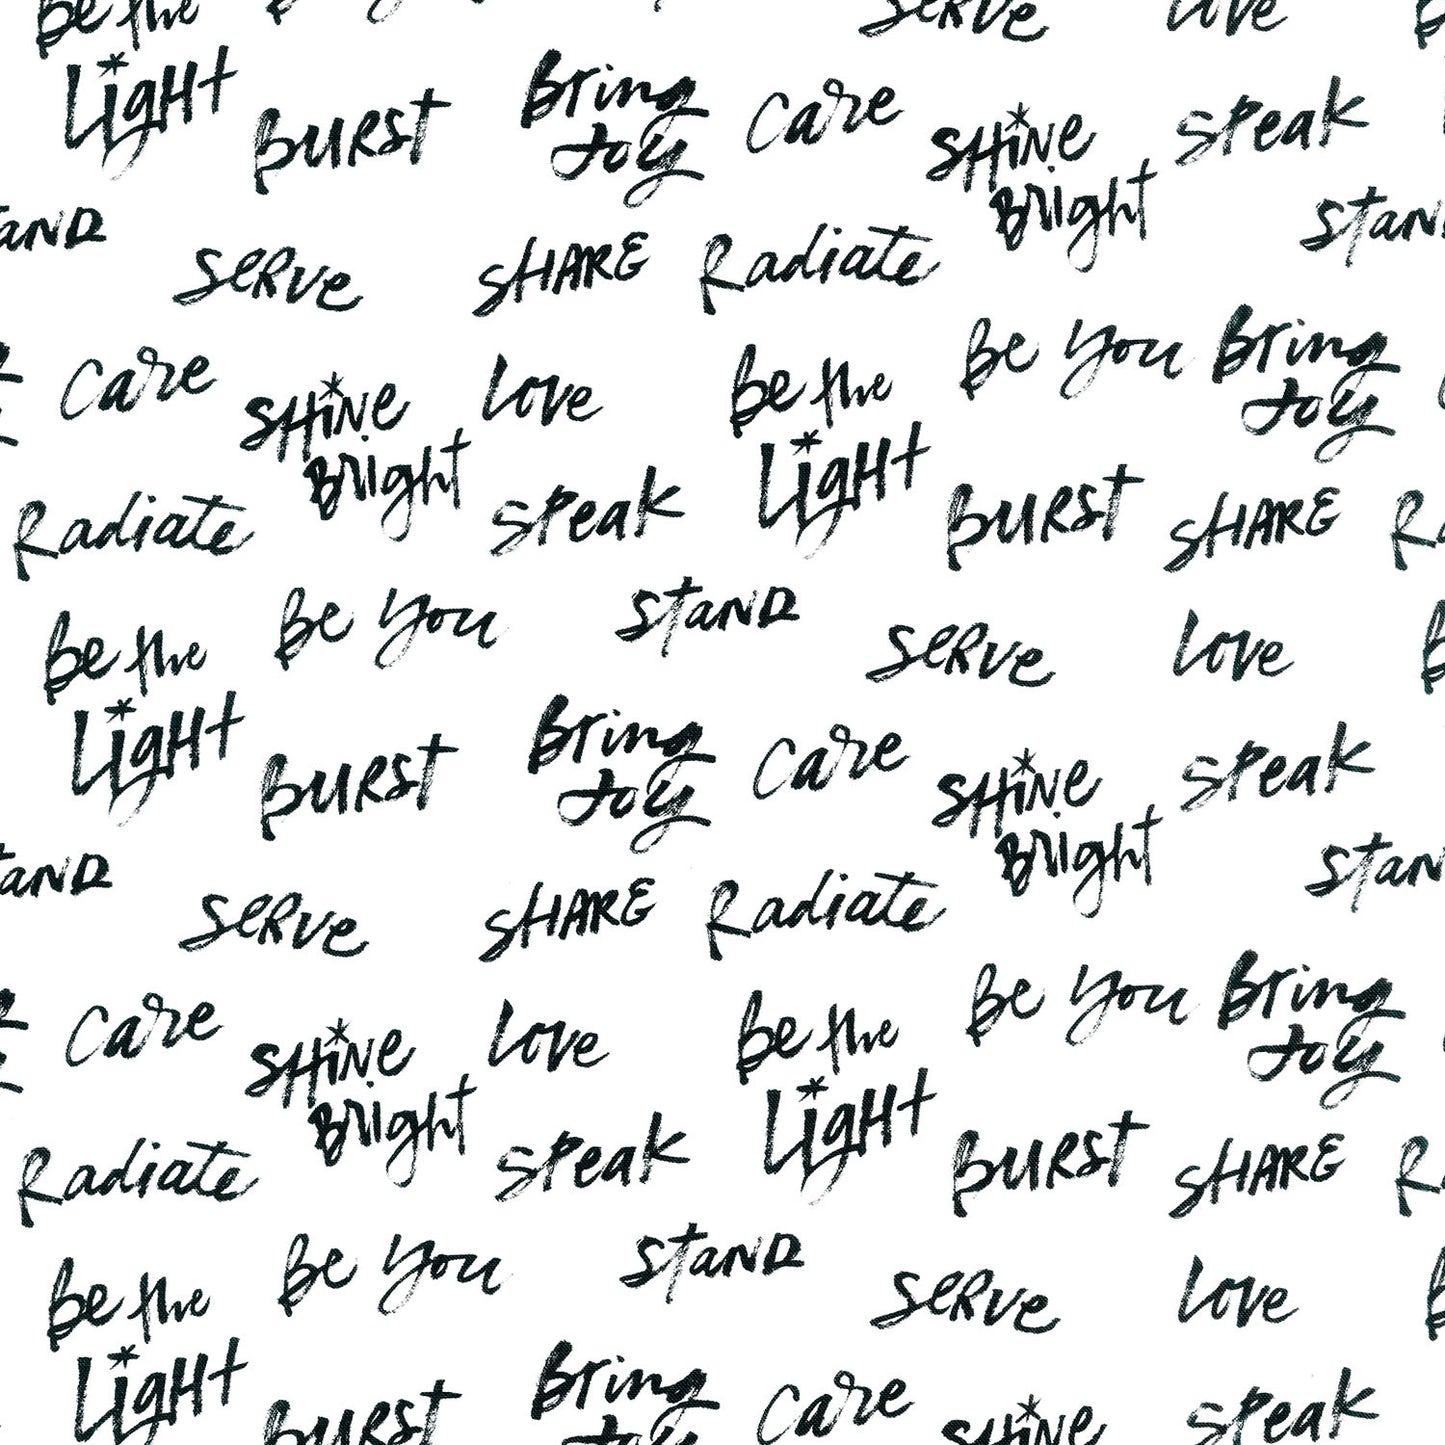 Be the
SERVE
Love
Light
BURST
Bring
Joy
Care
SHiNe
BRight
SPeak
StaND
SeRve
SHARE
Radiate
StaN
Care
SHiNe
BRight
Love
Be the
Light
Be You
Bring
Joy
Radiate
SPeak
BURST
SHARE
Ra
Be the
Light
Be You
StaND
SeRve
Love
BURST
Bring
Joy
Care
SHiNe
BRight
SPeak
taND
SeRve
SHARE
Radiate
StaN
Care
SHiNe
BRight
Love
Be the
Light
Be You
Bring
Joy
Radiate
SPeak
BURST
SHARE
Ra
Be the
Light
Be You
StaND
SeRve
Love
BURST
Bring
Joy
Care
SHiNe
SPeak